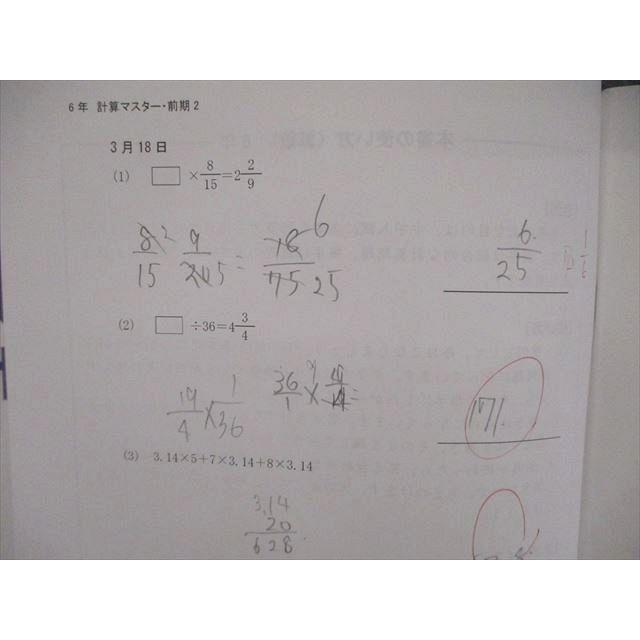 6年 計算マスター・前期2
3月18日
(1) □ × 8/15 = 2 2/9
8 2 9 18 6
15 20 5 = 75 25
6/25
(2) □ ÷ 36 = 4 3/4
19/4 × 1/36 36/1 × 19/4 =
171
(3) 3.14×5+7×3.14+8×3.14
3.14
20
628